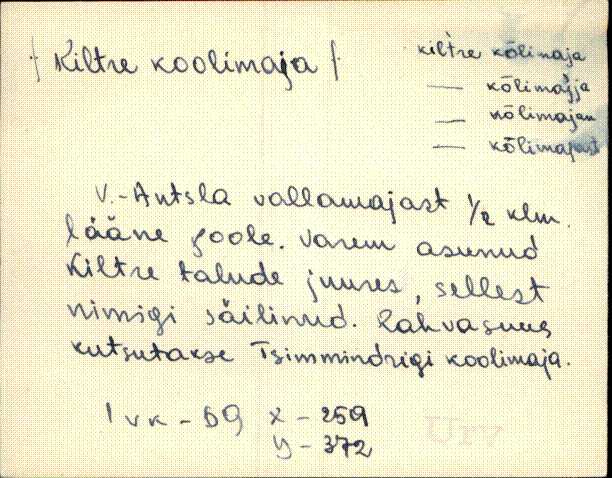 Kiltre koolimaja
kìltre kõlimaja
— kõlimajja
— kõlimajan
— kõlimajast
V.-Antsla vallamajast ½ klm.
lääne poole. Varem asunud
Kiltre talude juures, sellest
nimigi säilinud. Rahvasuus
kutsutakse Tsimmindrigi koolimaja.
I vk - 59 x - 259
y - 372
Urv